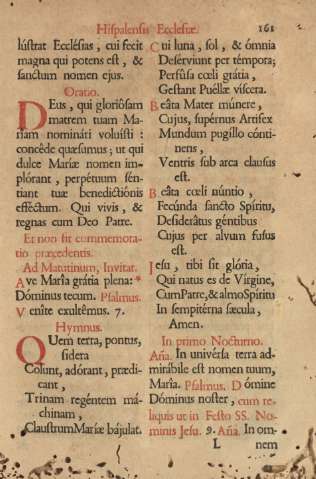 Hispalensis Ecclesiæ. 161
lústrat Ecclésias, cui fecit
magna qui potens est, &
sanctum nomen ejus.
Oratio.
DEus, qui gloriósam
matrem tuam Ma-
riam nominári voluísti:
concéde quæsumus; ut qui
dulce Maríæ nomen im-
plórant, perpétuum sén-
tiant tuæ benedictiónis
efféctum. Qui vivis, &
regnas cum Deo Patre.
Et non fit commemora-
tio præcedentis.
Ad Matutinum, Invitat.
Ave María grátia plena: *
Dóminus tecum. Psalmus.
Veníte exultémus. 7.
Hymnus.
QUem terra, pontus,
sídera
Colunt, adórant, prædi-
cant,
Trinam regéntem má-
chinam,
Claustrum Maríæ bájulat.
Cui luna, sol, & ómnia
Desérviunt per témpora;
Perfúsa cœli grátia,
Gestant Puéllæ víscera.
Beáta Mater múnere,
Cujus, supérnus Artifex
Mundum pugíllo cónti-
nens,
Ventris sub arca clausus
est.
Beáta cœli núntio,
Fecúnda sancto Spíritu,
Desiderátus géntibus
Cujus per alvum fusus
est.
Jesu, tibi sit glória,
Qui natus es de Vírgine,
Cum Patre, & almo Spíritu
In sempitérna sæcula,
Amen.
In primo Nocturno.
Aña. In univérsa terra ad-
mirábile est nomen tuum,
María. Psalmus. Dómine
Dóminus noster, cum re-
liquis ut in Festo SS. No-
minis Jesu. 9. Aña. In om-
L nem